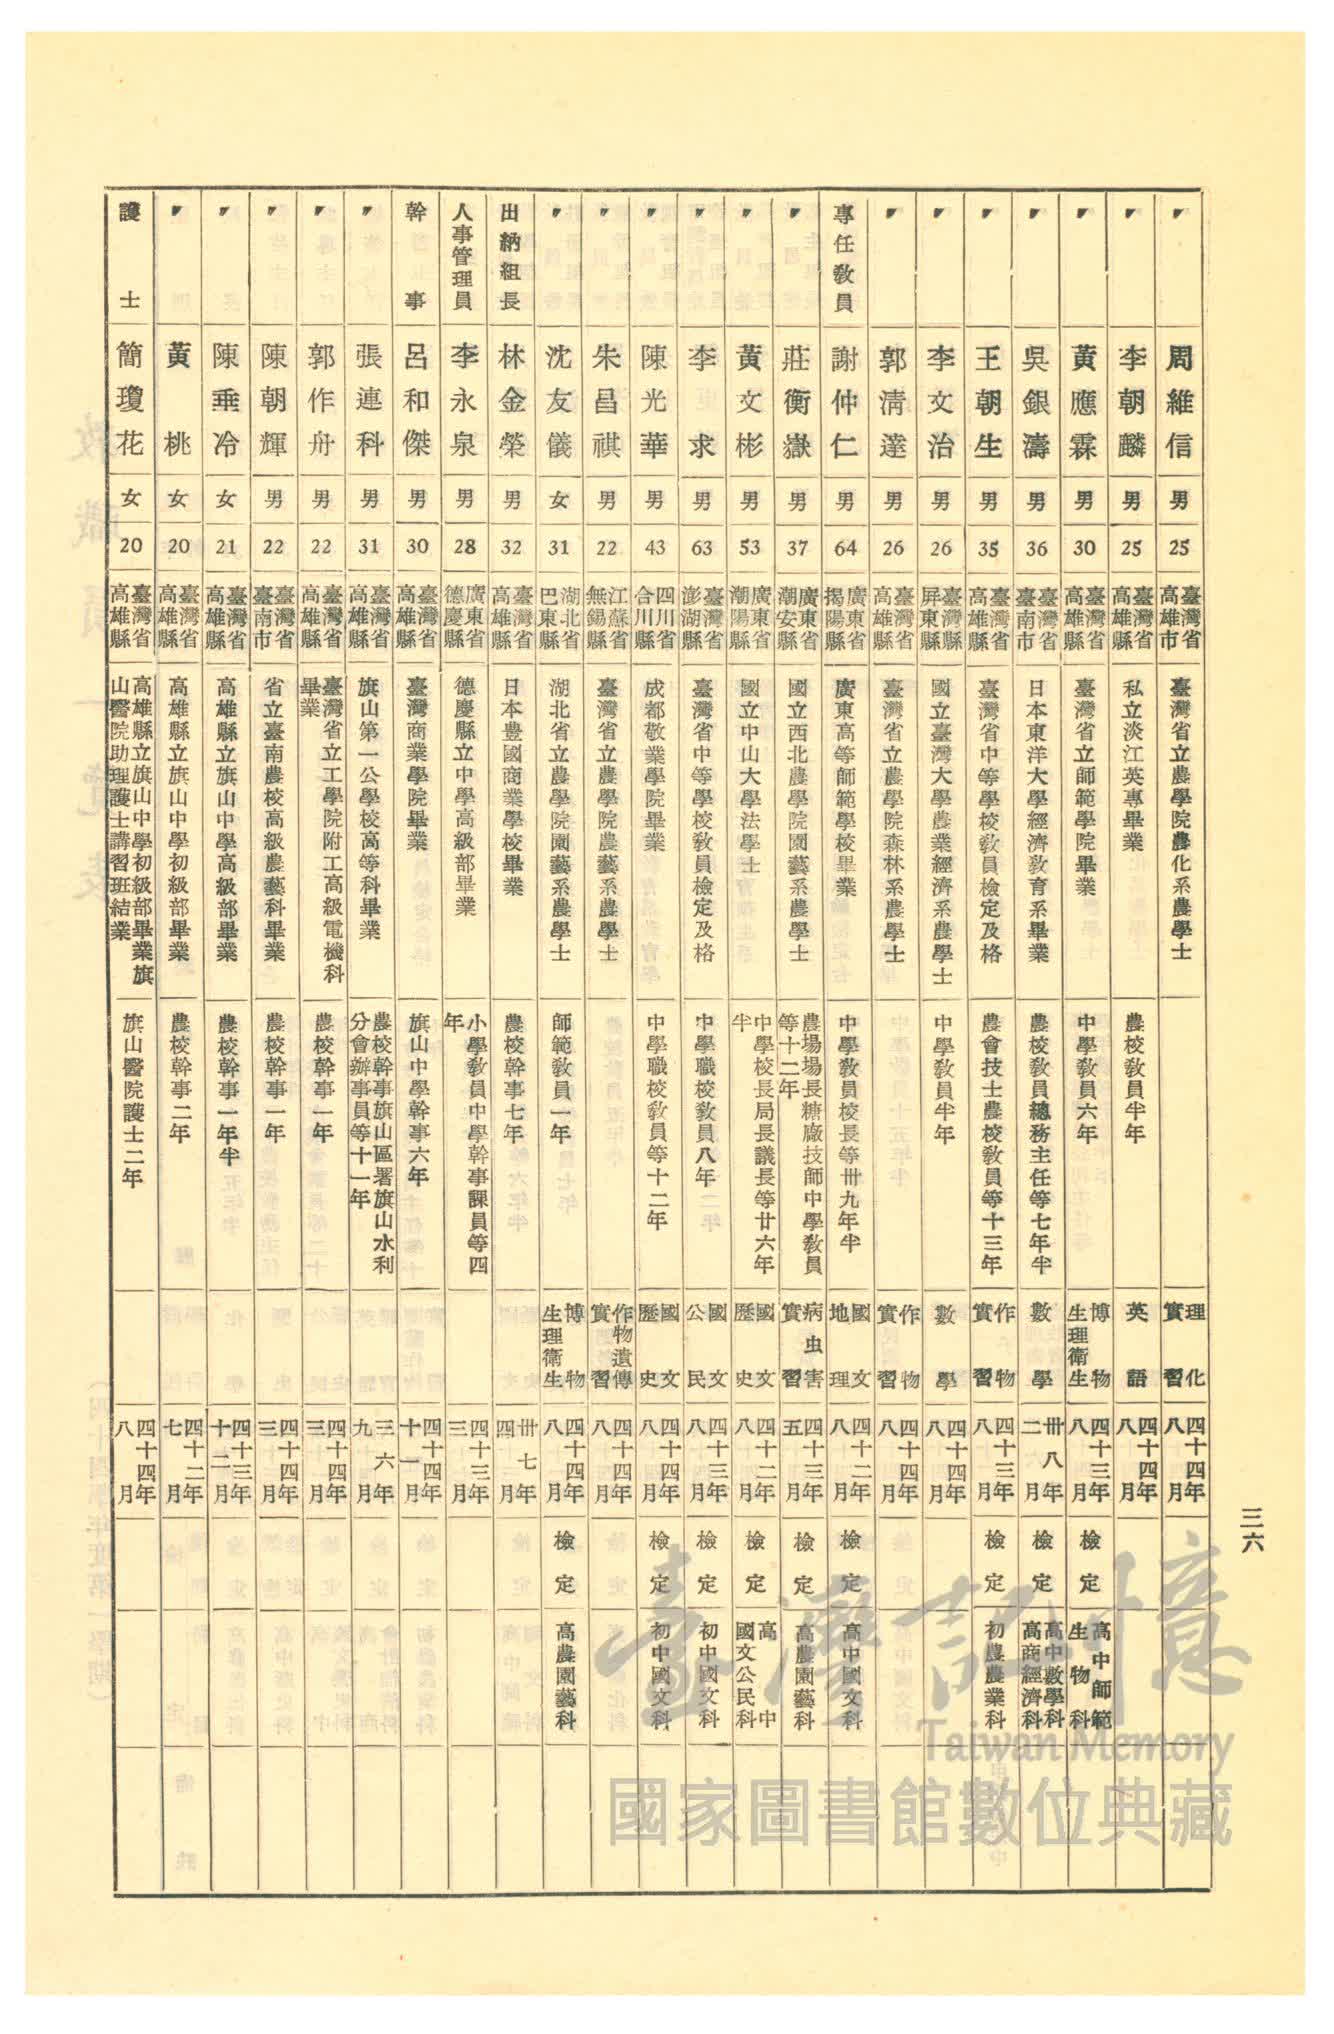 三六
〃 周維信 男 25 臺灣省高雄市 臺灣省立農學院農化系農學士 理化實習 四十四年八月
〃 李朝麟 男 25 臺灣省高雄縣 私立淡江英專畢業 農校教員半年 英語 四十四年八月
〃 黃應霖 男 30 臺灣省高雄縣 臺灣省立師範學院畢業 中學教員六年 博物生理衞生 四十三年八月 檢定 高中師範生物科
〃 吳銀濤 男 36 臺灣省臺南市 日本東洋大學經濟敎育系畢業 農校敎員總務主任等七年半 數學 卅八年二月 檢定 高中數學科高商經濟科
〃 王朝生 男 35 臺灣省高雄縣 臺灣省中等學校敎員檢定及格 農會技士農校敎員等十三年 作物實習 四十三年八月 檢定 初農農業科
〃 李文治 男 26 臺灣縣屏東縣 國立臺灣大學農業經濟系農學士 中學敎員半年 數學 四十四年八月
〃 郭清達 男 26 臺灣省高雄縣 臺灣省立農學院森林系農學士 作物實習 四十四年八月
專任敎員 謝仲仁 男 64 廣東省揭陽縣 廣東高等師範學校畢業 中學敎員校長等卅九年半 國文地理 四十二年八月 檢定 高中國文科
〃 莊衡嶽 男 37 廣東省潮安縣 國立西北農學院園藝系農學士 農場場長糖廠技師中學敎員等十二年 病虫害實習 四十三年五月 檢定 高農園藝科
〃 黃文彬 男 53 廣東省潮陽縣 國立中山大學法學士 中學校長局長議長等廿六年半 國文歷史 四十二年八月 檢定 高中國文公民科
〃 李求 男 63 臺灣省澎湖縣 臺灣省中等學校敎員檢定及格 中學職校敎員八年 國文公民 四十三年八月 檢定 初中國文科
〃 陳光華 男 43 四川省合川縣 成都敬業學院畢業 中學職校敎員等十二年 國文歷史 四十四年八月 檢定 初中國文科
〃 朱昌祺 男 22 江蘇省無錫縣 臺灣省立農學院農藝系農學士 作物遺傳實習 四十四年八月
〃 沈友儀 女 31 湖北省巴東縣 湖北省立農學院園藝系農學士 師範敎員一年 博物生理衞生 四十四年八月 檢定 高農園藝科
出納組長 林金榮 男 32 臺灣省高雄縣 日本豊國商業學校畢業 農校幹事七年 卅七年四月
人事管理員 李永泉 男 28 廣東省德慶縣 德慶縣立中學高級部畢業 小學敎員中學幹事課員等四年 四十三年三月
幹事 呂和傑 男 30 臺灣省高雄縣 臺灣商業學院畢業 旗山中學幹事六年 四十四年十一月
〃 張連科 男 31 臺灣省高雄縣 旗山第一公學校高等科畢業 農校幹事旗山區署旗山水利分會辦事員等十一年 三六年九月
〃 郭作舟 男 22 臺灣省高雄縣 臺灣省立工學院附工高級電機科畢業 農校幹事一年 四十四年三月
〃 陳朝輝 男 22 臺灣省臺南市 省立臺南農校高級農藝科畢業 農校幹事一年 四十四年三月
〃 陳垂冷 女 21 臺灣省高雄縣 高雄縣立旗山中學高級部畢業 農校幹事一年半 四十三年十二月
〃 黃桃 女 20 臺灣省高雄縣 高雄縣立旗山中學初級部畢業 農校幹事二年 四十二年七月
護士 簡瓊花 女 20 臺灣省高雄縣 高雄縣立旗山中學初級部畢業旗山醫院助理護士講習班結業 旗山醫院護士二年 四十四年八月
臺灣記憶
Taiwan Memory
國家圖書館數位典藏